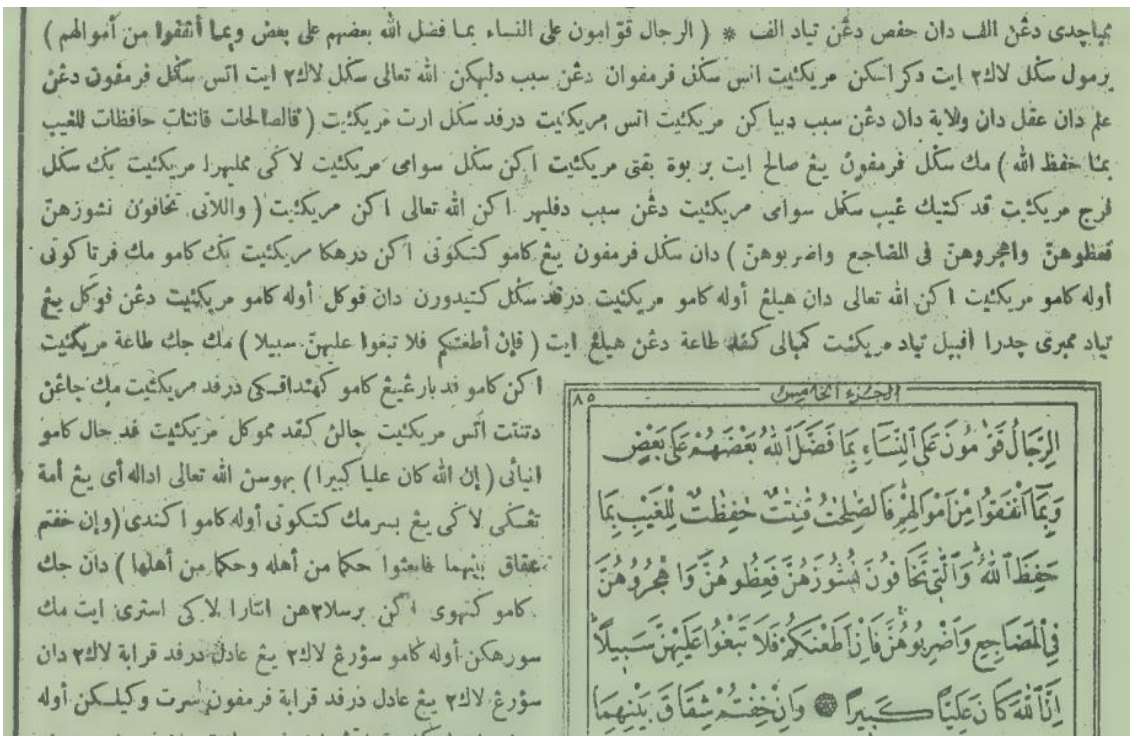 ممباچدي دڠن الف دان حفص دڠن تياد الف * ( الرجال قوّامون على النساء بما فضل الله بعضهم على بعض وبما أنفقوا من أموالهم )
برمول سكل لاك٢ ايت دكراسكن مريكئيت اتس سكل فرمفوان دڠن سبب دلبهكن الله تعالى سكل لاك٢ ايت اتس سكل فرمفون دڠن
علم دان عقل دان ولاية دان دڠن سبب دبياكن مريكئيت اتس مريكئيت درفد سكل ارت مريكئيت ( فالصالحات قانتات حافظات للغيب
بما حفظ الله ) مك سكل فرمفون يڠ صالح ايت بربوة بقتي مريكئيت اكن سكل سوامي مريكئيت لاكي ممليهرا مريكئيت بك سكل
فرج مريكئيت قد كتيك غيب سكل سوامي مريكئيت دڠن سبب دفلهر اكن الله تعالى اكن مريكئيت ( واللاتى تخافون نشوزهنّ
فعظوهنّ واهجروهنّ فى المضاجع واضربوهنّ ) دان سكل فرمفون يڠ كامو كتكوتي اكن درهكا مريكئيت بك كامو مك فرتاكوتي
أوله كامو مريكئيت اكن الله تعالى دان هيلڠ أوله كامو مريكئيت درفد سكل كتيدورن دان فوكل أوله كامو مريكئيت دڠن فوكل يڠ
تياد ممبري چدرا افبيل تياد مريكئيت كمبالى كفد طاعة دڠن هيلڠ ايت ( فإن أطعنكم فلا تبغوا عليهنّ سبيلا ) مك جك طاعة مريكئيت
اكن كامو فد بارڠيڠ كامو كهنداقكي درفد مريكئيت مك جاڠن
دتنتت اتس مريكئيت جالن كفد مموكل مريكئيت فد حال كامو
انيأي ( إن الله كان عليا كبيرا ) بهوسن الله تعالى اداله أي يڠ أمة
تڠكي لاكي يڠ بسر مك كتكوتي أوله كامو اكندي ( وإن خفتم
شقاق بينهما فابعثوا حكما من أهله وحكما من أهلها ) دان جك
كامو كتهوي اكن برسلاهن انتارا لاكي استري ايت مك
سورهكن أوله كامو سؤرڠ لاك٢ يڠ عادل درفد قرابة لاك٢ دان
سؤرڠ لاك٢ يڠ عادل درفد قرابة فرمفون سرت وكيلكن أوله
الجزء الخامس ٨٥
الرِّجَالُ قَوَّامُونَ عَلَى النِّسَاءِ بِمَا فَضَّلَ اللهُ بَعْضَهُمْ عَلَى بَعْضٍ
وَبِمَا أَنْفَقُوا مِنْ أَمْوَالِهِمْ فَالصّٰلِحٰتُ قٰنِتٰتٌ حٰفِظٰتٌ لِلْغَيْبِ بِمَا
حَفِظَ اللهُ وَالّٰتِي تَخَافُونَ نُشُوزَهُنَّ فَعِظُوهُنَّ وَاهْجُرُوهُنَّ
فِي الْمَضَاجِعِ وَاضْرِبُوهُنَّ فَإِنْ أَطَعْنَكُمْ فَلَا تَبْغُوا عَلَيْهِنَّ سَبِيلًا
إِنَّ اللهَ كَانَ عَلِيًّا كَبِيرًا ۝ وَإِنْ خِفْتُمْ شِقَاقَ بَيْنِهِمَا